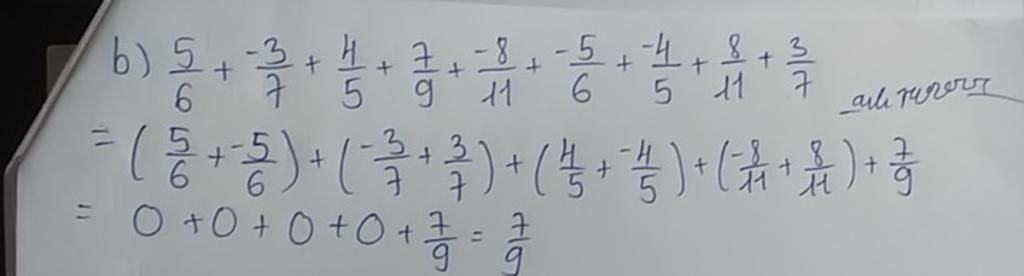 b) 5/6 + -3/7 + 4/5 + 7/9 + -8/11 + -5/6 + -4/5 + 8/11 + 3/7
= (5/6 + -5/6) + (-3/7 + 3/7) + (4/5 + -4/5) + (-8/11 + 8/11) + 7/9
= 0 + 0 + 0 + 0 + 7/9 = 7/9